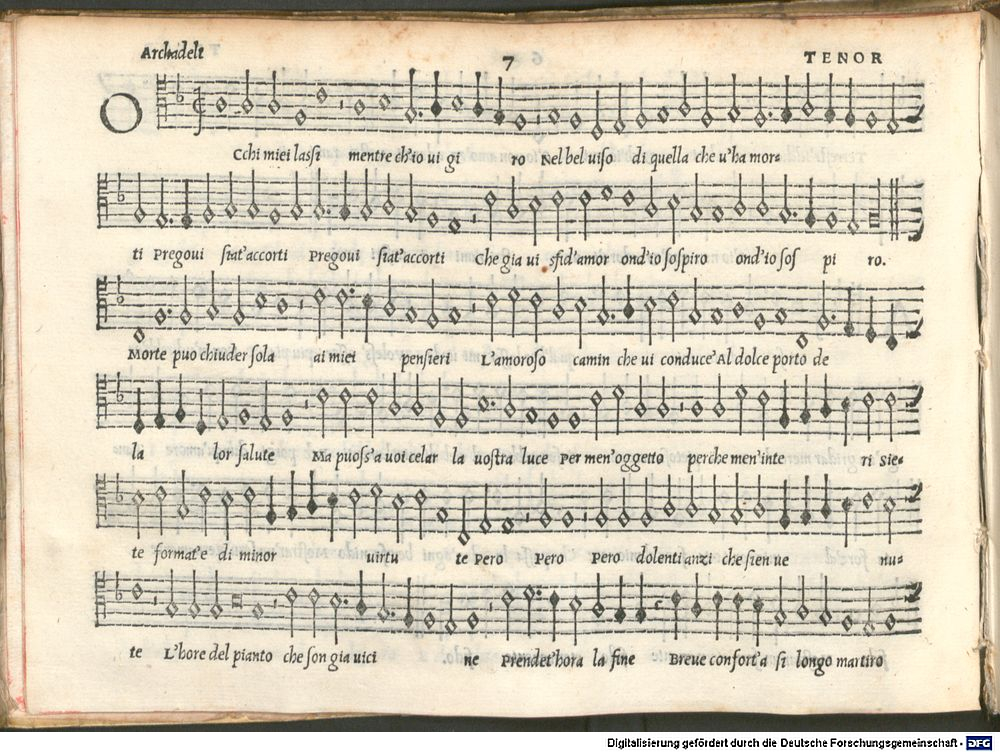 Archadelt 7 TENOR
O
Cchi miei lassi mentre ch'io ui gi ro Nel bel uiso di quella che u'ha mor-
ti Pregoui siat'accorti Pregoui siat'accorti Che gia ui sfid'amor ond'io sospiro ond'io sos pi ro.
Morte puo chiuder sola ai miei pensieri L'amoroso camin che ui conduce' Al dolce porto de
la lor salute Ma puoss'a uoi celar la uostra luce Per men'oggetto perche men'inte ri Sie-
te format'e di minor uirtu te Pero Pero Pero dolenti anzi che sien ue nu-
te L'hore del pianto che son gia uici ne Prendet'hora la fine Breue confort'a si longo martiro
Digitalisierung gefördert durch die Deutsche Forschungsgemeinschaft - DFG